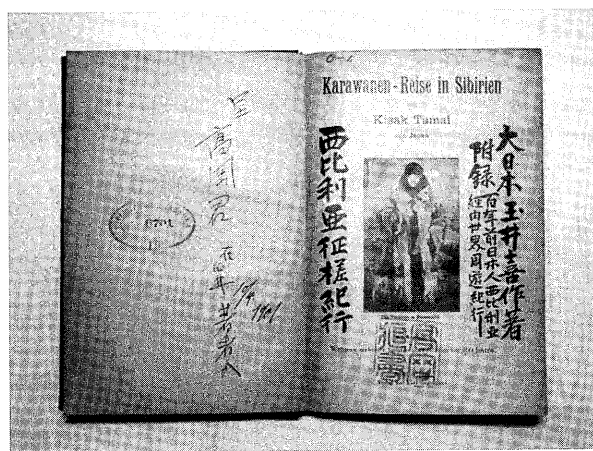 呈
高岡君
著者
1901
Karawanen-Reise in Sibirien
Kisak Tamai
aus Japan
大日本 玉井喜作著
附録 百年前日本人西比利亞
經由世界周遊紀行
西比利亞征槎紀行